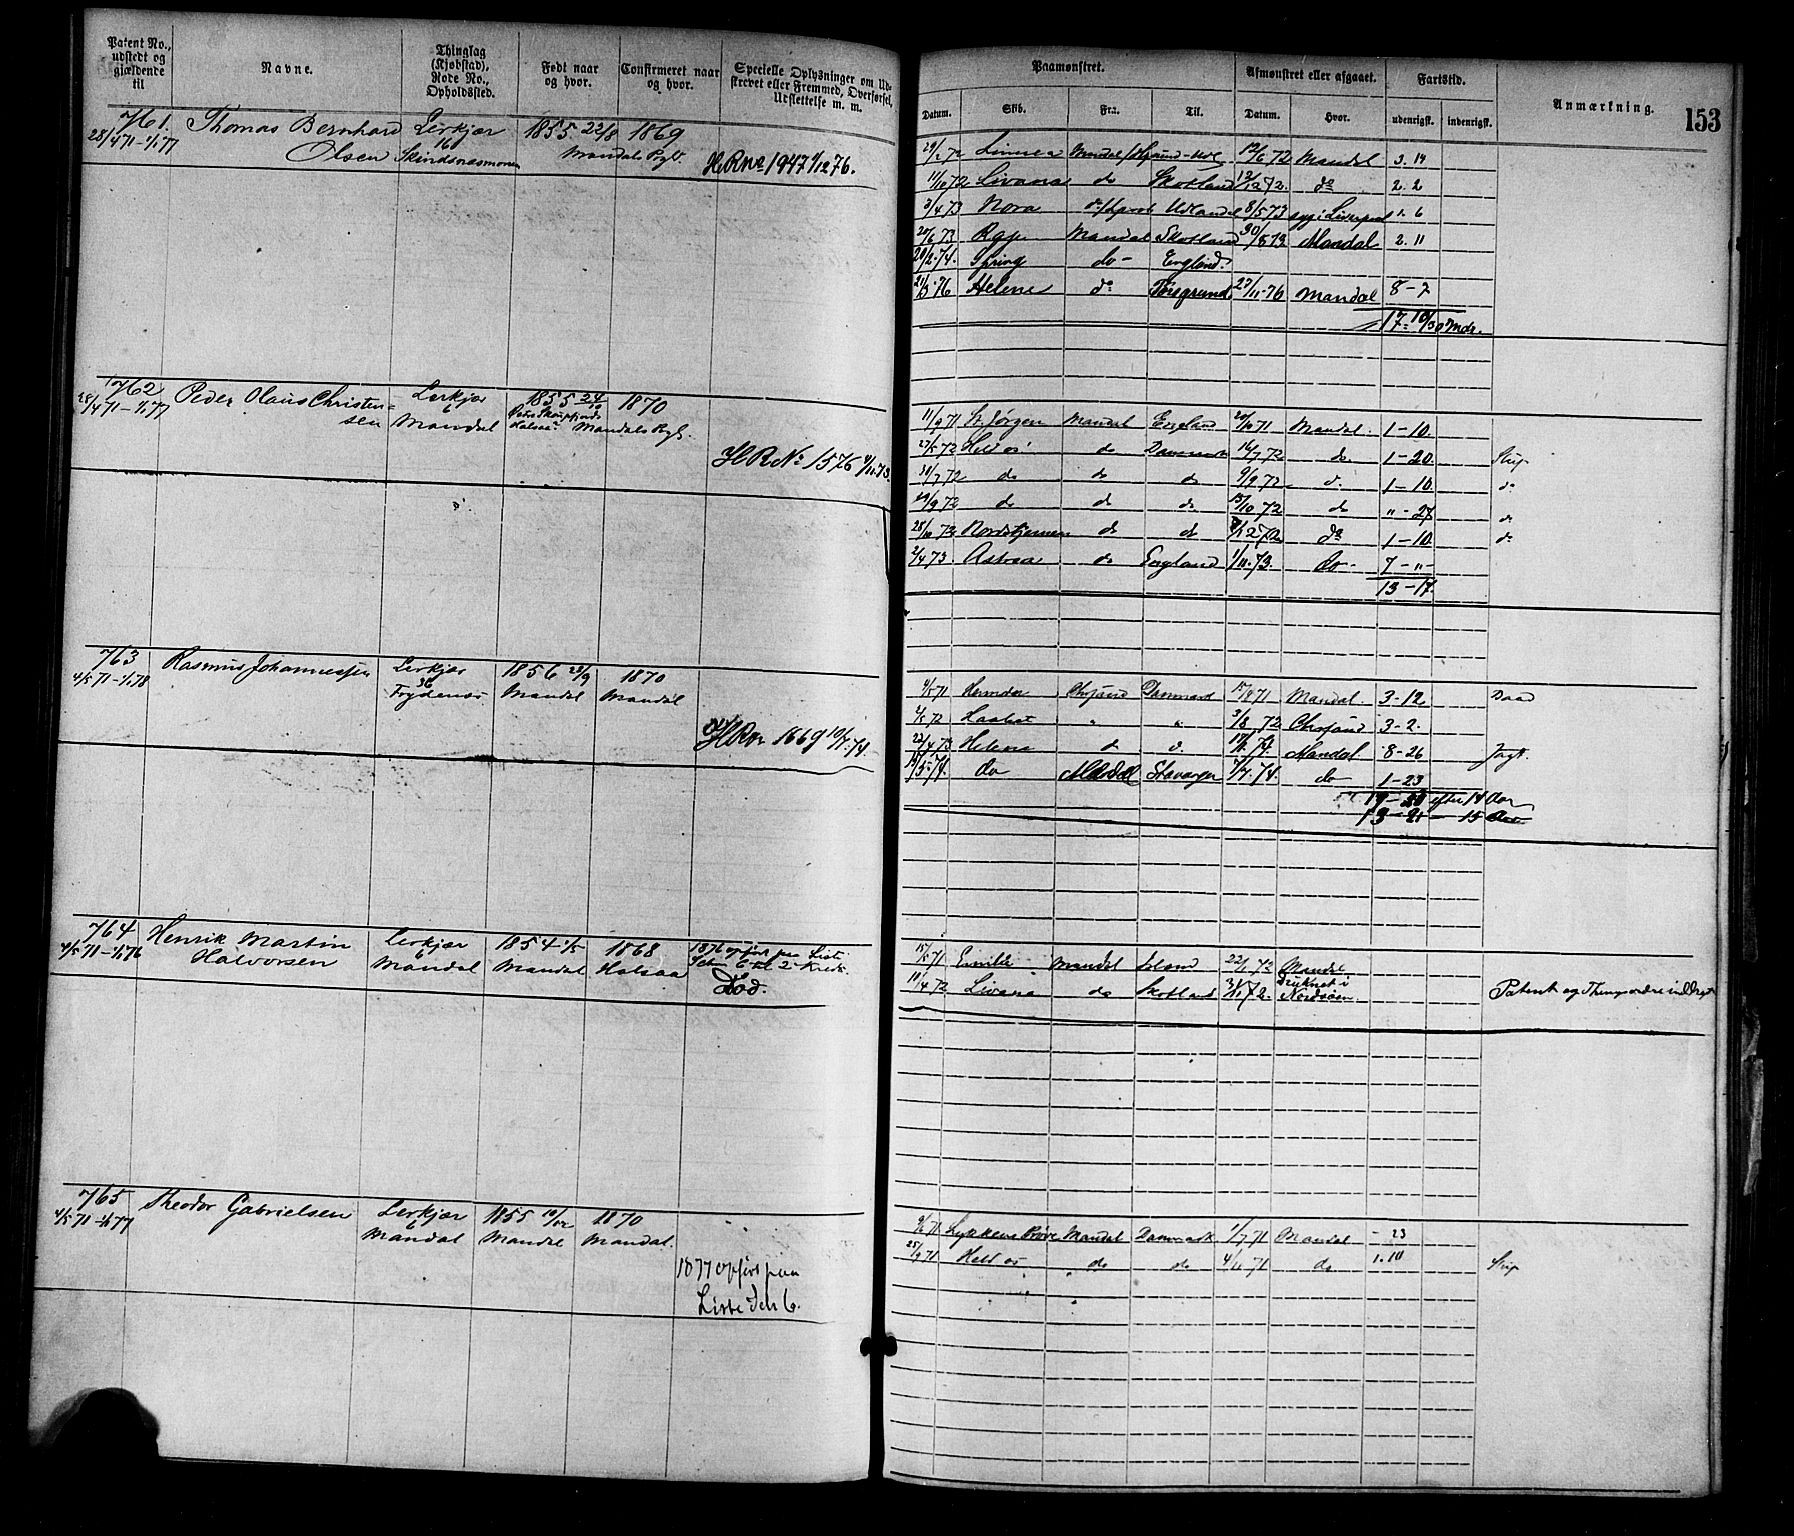 Patent No., udstedt og gjældende til
Navne.
Thinglag (Kjøbstad), Rode No., Opholdssted.
Født naar og hvor.
Confirmeret naar og hvor.
Specielle Oplysninger om Udskrevet eller Fremmed, Overførsel, Udslettelse m. m.
Paamønstret.
Afmønstret eller afgaaet.
Fartstid.
Anmærkning.
153
Datum. Skib. Fra: Til: Datum. Hvor. udenrigsk. indenrigsk.
761. Thomas Bernhard Lerkjær 1855 22/8 1869
28/4 71 - 1/1 77 Olsen 16 Skindsnæsmonen Mandals Pgd. H.R.No 1947 1/12 76.
29/2 72 Linnea Mandal 12/6 72 Mandal 3. 14
11/10 72 Livana do Skotland 12/12 72. do 2. 2
3/4 73 Nora Udlandet 8/5 73 syg i Liverpool 1. 6
20/6 73 Mandal Skotland 30/8 73 Mandal 2. 11
20/2 74. Spring do - England.
21/3 76 Helene do 27/11 76 Mandal 8 - 7
17 - 10/30 Mdr.
762 Peder Olaus Christen- Lerkjær 1855 24/10 1870
28/4 71 - 1/1 77 sen 6 Mandal Halsaa Mandals Pgd.
H.R.No. 1576 4/11 73.
11/9 71 St. Jørgen Mandal England 20/10 71 Mandal. 1 - 10.
27/5 72 Held os do Danmark 16/7 72 do 1 - 20. Slup
30/7 72 do do do 9/9 72 do 1 - 10. do
19/9 72 do do do 15/10 72 do " - 27 do
28/10 72 Nordstjernen do do 7/12 72 do 1 - 10. do
2/4 73 Astrea do England 1/11 73. do - 7 - " -
13 - 17.
763 Rasmus Johannessen Lerkjær 1856 28/9 1870
4/5 71 - 1/1 78 36 Frydenæs Mandal Mandal
H.R.No 1669 10/7 74.
4/5 71 Danmark 15/9 71 Mandal. 3 - 12
2/5 72 Haabet " " 3/8 72 3 - 2.
22/4 73 Helene do do Mandal 8 - 26 Jagt.
do Mandal Stavanger 7/7 74. do 1 - 23
19 - 20 efter 14 Aar
13 - 21 - 15
764 Henrik Martin Lerkjær 1854 1/5 1868 1876 opført paa Liste
4/5 71 - 1/1 76 Halvorsen 6 Mandal Mandal Halsaa
Død.
15/5 71 Emilie Mandal Island 22/1 72 Mandal
11/4 72 Livana do Skotland Druknet i Nordsøen. Patent og inddraget
765 Theodor Gabrielsen Lerkjær 1855 10/12 1870
4/5 71 - 1/1 77 6 Mandal Mandal Mandal.
1877 opført paa
Liste Ich 6.
9/6 71 Lykkens Prøve Mandal Danmark 1/7 71 Mandal - 23
25/9 71 Held os do do 4/11 71 do 1. 10 Slup